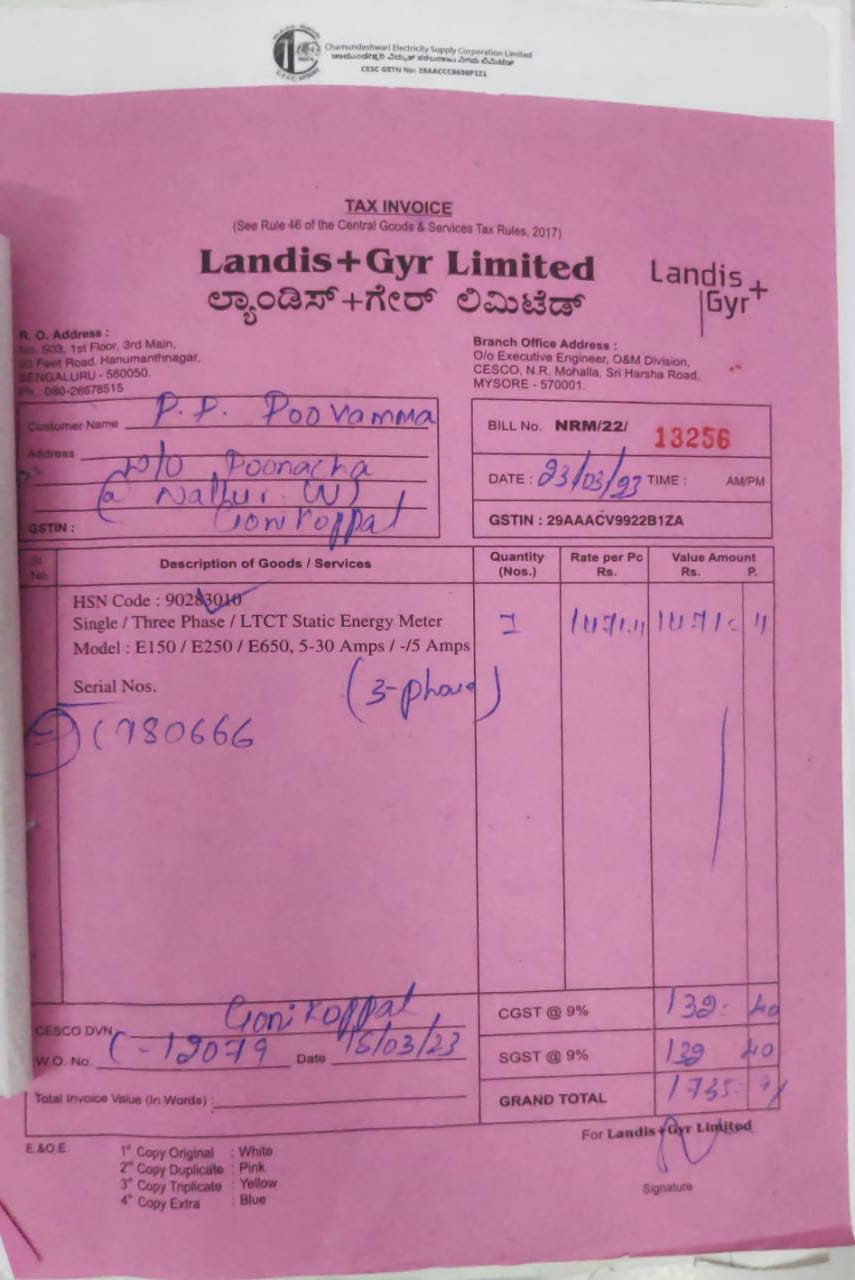 Chamundeshwari Electricity Supply Corporation Limited
ಚಾಮುಂಡೇಶ್ವರಿ ವಿದ್ಯುತ್ ಸರಬರಾಜು ನಿಗಮ ಲಿಮಿಟೆಡ್
CESC GSTN No:
TAX INVOICE
(See Rule 46 of the Central Goods & Services Tax Rules, 2017)
Landis+Gyr Limited
ಲ್ಯಾಂಡಿಸ್+ಗೇರ್ ಲಿಮಿಟೆಡ್
Landis
Gyr+
R. O. Address :
No. 503, 1st Floor, 3rd Main,
Feet Road, Hanumanthnagar,
BENGALURU - 560050.
Ph : 080-26678515
Branch Office Address :
O/o Executive Engineer, O&M Division,
CESCO, N.R. Mohalla, Sri Harsha Road,
MYSORE - 570001.
Customer Name P.P. Poovamma
Address
Poonacha
@ Nallur (V)
Gonikoppal
GSTIN :
BILL No. NRM/22/ 13256
DATE : 23/03/23 TIME : AM/PM
GSTIN : 29AAACV9922B1ZA
Sl. No. Description of Goods / Services Quantity (Nos.) Rate per Pc Rs. Value Amount Rs. P.
HSN Code : 90283010
Single / Three Phase / LTCT Static Energy Meter 1
Model : E150 / E250 / E650, 5-30 Amps / -/5 Amps
Serial Nos. (3-phase)
780666
CESCO DVN Gonikoppal
W.O. No. C-12079 Date 15/03/23
Total Invoice Value (In Words) :
CGST @ 9% 132 40
SGST @ 9% 132 40
GRAND TOTAL 1735
E.&O.E.
1st Copy Original : White
2nd Copy Duplicate : Pink
3rd Copy Triplicate : Yellow
4th Copy Extra : Blue
For Landis+Gyr Limited
Signature